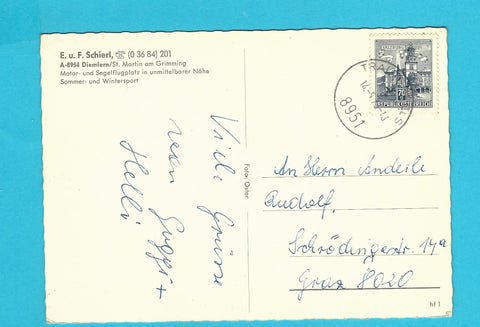 E. u. F. Schierl, ☎ (0 36 84) 201
A-8954 Diemlern/St. Martin am Grimming
Motor- und Segelflugplatz in unmittelbarer Nähe
Sommer- und Wintersport
Viele Grüsse
von Guggi +
Helli
Foto: Oster
REPUBLIK ÖSTERREICH
8951
An Herrn Anderle
Rudolf,
Schrödingerstr. 14a
Graz 8020
hf 1